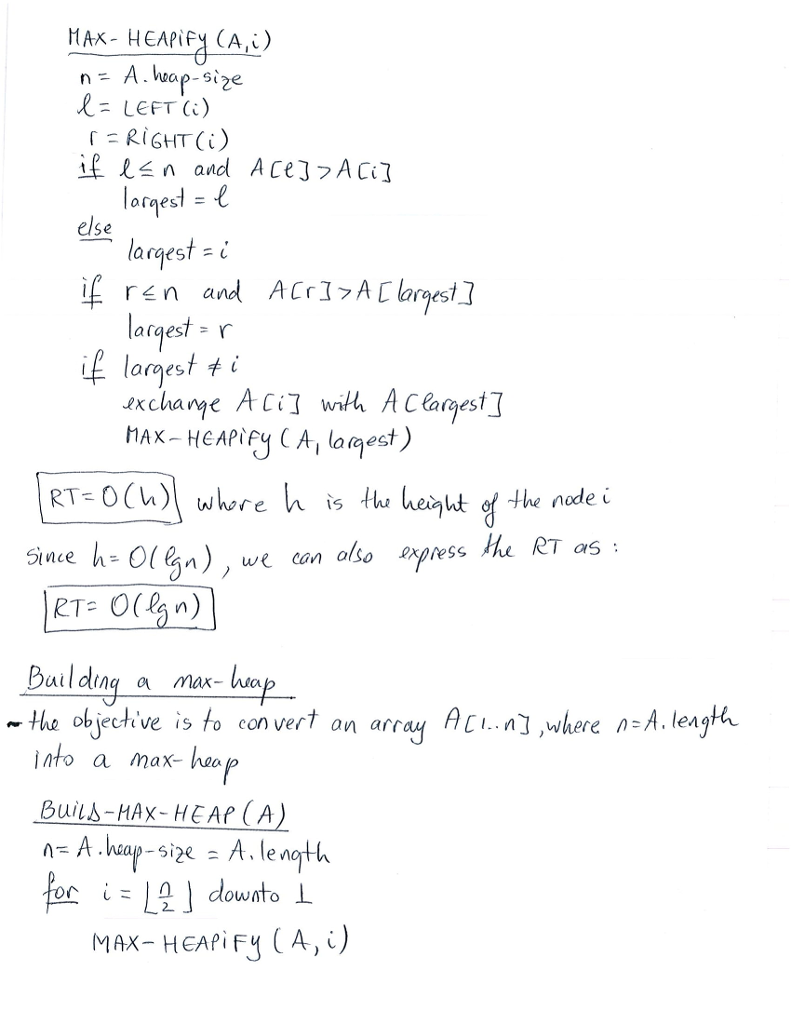 MAX-HEAPIFY(A,i)
n = A.heap-size
l = LEFT(i)
r = RIGHT(i)
if l ≤ n and A[l] > A[i]
largest = l
else
largest = i
if r ≤ n and A[r] > A[largest]
largest = r
if largest ≠ i
exchange A[i] with A[largest]
MAX-HEAPIFY(A, largest)
RT = O(h) where h is the height of the node i
since h = O(lgn), we can also express the RT as:
RT = O(lg n)
Building a max-heap
- the objective is to convert an array A[1..n], where n=A.length
into a max-heap
BUILD-MAX-HEAP(A)
n = A.heap-size = A.length
for i = ⌊n/2⌋ downto 1
MAX-HEAPIFY(A, i)